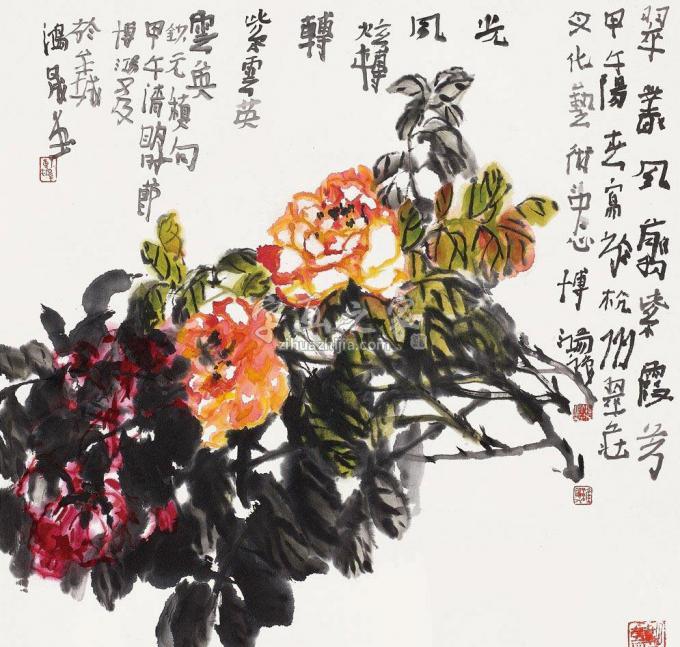 翠叢風剪紫霞芳
甲午陽春寫於杭州翠莊
文化藝術中心博
光
風
炫轉
轉
紫雲英
雲英
元稹句
甲午清明節
博鴻又及
於羊城
字画之家
zihuazhijia.com